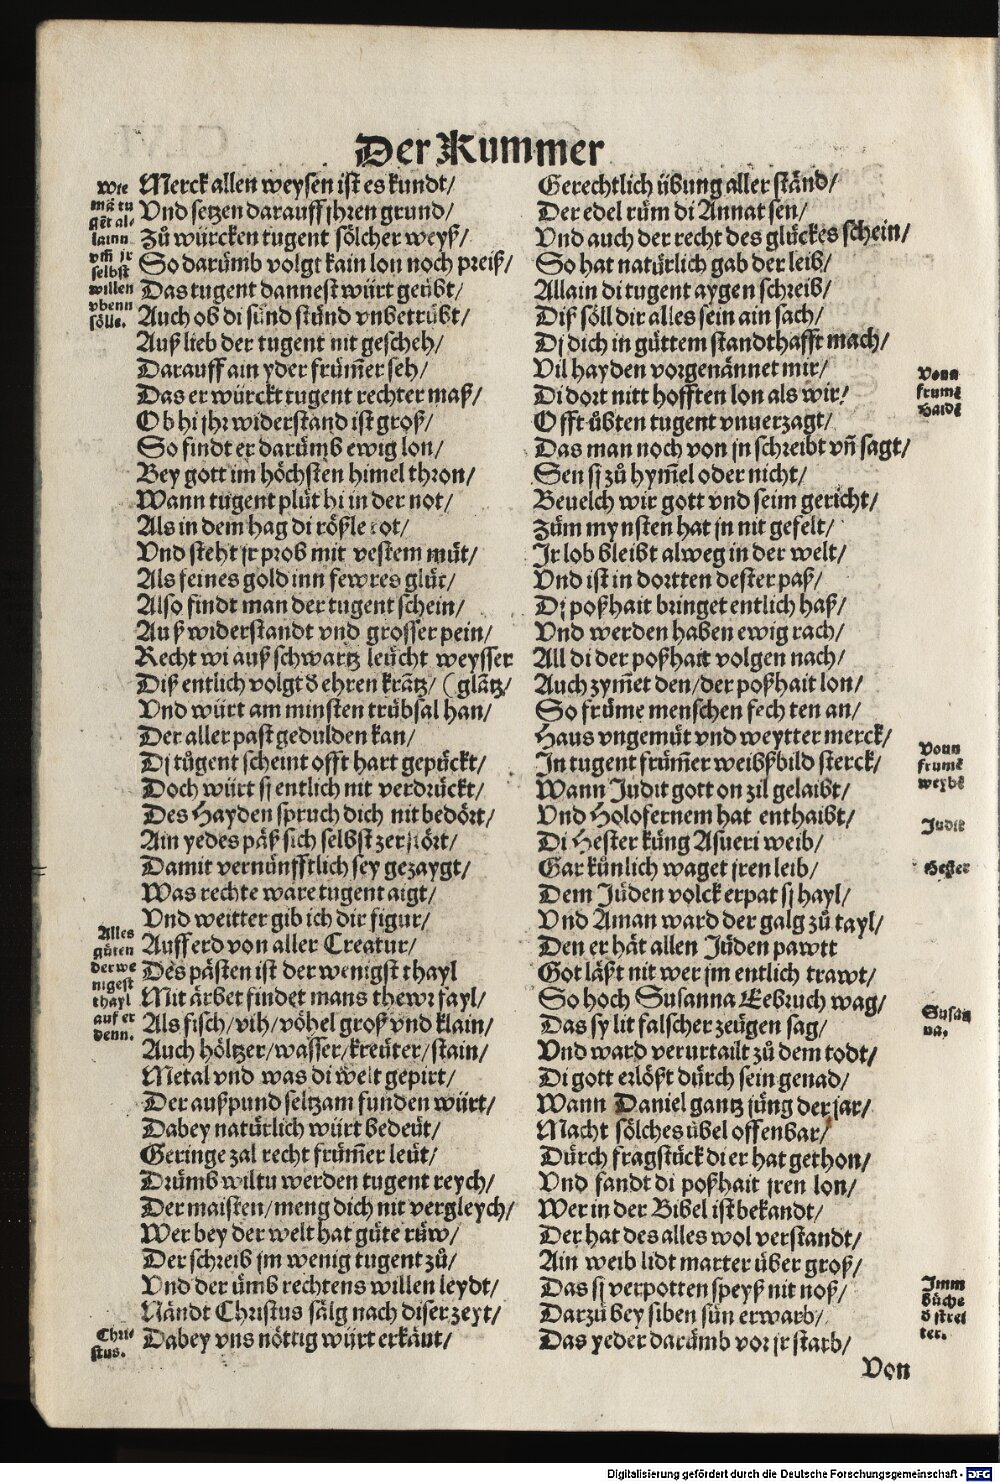 Der Kummer
Wie
mã tu
gẽt al-
lainn
vm̃ jr
selbst
willen
vbenn
sölle.
Merck allen weysen ist es kundt/
Vnd setzen darauff jhren grund/
Zů würcken tugent sölcher weyß/
So darümb volgt kain lon noch preiß/
Das tugent dannest würt geübt/
Auch ob di sünd stünd vnbetrübt/
Auß lieb der tugent nit gescheh/
Darauff ain yder frümer seh/
Das er würckt tugent rechter maß/
Ob hi jhr widerstand ist groß/
So findt er darümb ewig lon/
Bey gott im höchsten himel thron/
Wann tugent plüt hi in der not/
Als in dem hag di rößle rot/
Vnd steht jr prob mit vestem müt/
Als feines gold inn fewres glüt/
Also findt man der tugent schein/
Auß widerstandt vnd grosser pein/
Recht wi auß schwartz leücht weysser
Diß entlich volgt ð ehren krãtz/ (glãtz/
Vnd würt am minsten trübsal han/
Der aller past gedulden kan/
Di tügent scheint offt hart gepückt/
Doch würt si entlich nit verdrückt/
Des Hayden spruch dich nit bedört/
Ain yedes päß sich selbst zerstört/
Damit vernünfftlich sey gezaygt/
Was rechte ware tugent aigt/
Vnd weitter gib ich dir figur/
Alles
güten
der we
nigest
thayl
auf er
denn.
Auff erd von aller Creatur/
Des pästen ist der wenigst thayl
Mit ärbet findet mans thewr fayl/
Als fisch/vih/vöhel groß vnd klain/
Auch höltzer/wasser/kreüter/stain/
Metal vnd was di welt gepirt/
Der außpund seltzam funden würt/
Dabey natürlich würt bedeüt/
Geringe zal recht frümer leüt/
Drümb wiltu werden tugent reych/
Der maisten/meng dich nit vergleych/
Wer bey der welt hat güte rüw/
Der schreib jm wenig tugent zů/
Vnd der ümb rechtens willen leydt/
Nändt Christus sälg nach diser zeyt/
Chri-
stus.
Dabey vns nöttig würt erkänt/
Gerechtlich übung aller ständ/
Der edel rüm di Annat sen/
Vnd auch der recht des glückes schein/
So hat natürlich gab der leib/
Allain di tugent aygen schreib/
Diß söll dir alles sein ain sach/
Di dich in güttem standthafft mach/
Vonn
frumẽ
Haidẽ
Vil hayden vorgenännet mir/
Di dort nitt hofften lon als wir/
Offt übten tugent vnuerzagt/
Das man noch von jn schreibt vñ sagt/
Sen si zů hym̃el oder nicht/
Beuelch wir gott vnd seim gericht/
Züm mynsten hat jn nit gefelt/
Jr lob bleibt alweg in der welt/
Vnd ist in dortten dester paß/
Di poßhait bringet entlich haß/
Vnd werden haben ewig rach/
All di der poßhait volgen nach/
Auch zym̃et den/der poßhait lon/
So früme menschen fechten an/
Vonn
frumẽ
weybẽ
Haus vngemüt vnd weytter merck/
In tugent früm̃er weibßbild sterck/
Judit
Wann Judit gott on zil gelaibt/
Vnd Holofernem hat enthaibt/
Hester
Di Hester küng Asueri weib/
Gar künlich waget jren leib/
Dem Jüden volck erpat si hayl/
Vnd Aman ward der galg zů tayl/
Den er hät allen Jüden pawtt
Got läßt nit wer jm entlich trawt/
Susan
na.
So hoch Susanna Eebruch wag/
Das sy lit falscher zeügen sag/
Vnd ward verurtailt zů dem todt/
Di gott erlößt dürch sein genad/
Wann Daniel gantz jüng der jar/
Macht sölches übel offenbar/
Dürch fragstück di er hat gethon/
Vnd fandt di poßhait jren lon/
Wer in der Bibel ist bekandt/
Der hat des alles wol verstandt/
Imm
büche
ð strei
ter.
Ain weib lidt marter über groß/
Das si verpotten speyß nit noß/
Darzü bey siben sün erwarb/
Das yeder darümb vor jr starb/
Von
Digitalisierung gefördert durch die Deutsche Forschungsgemeinschaft - DFG